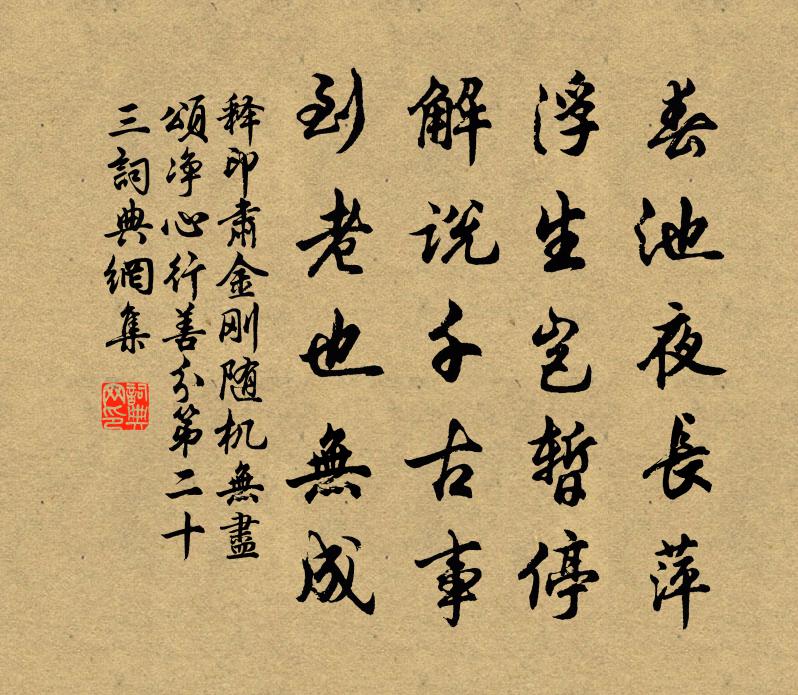 春池夜長萍
浮生岂暫停
解説千古事
到老也無成
释印肃金刚随机無盡
頌净心行善分第二十
三詞典網集
詞典網印